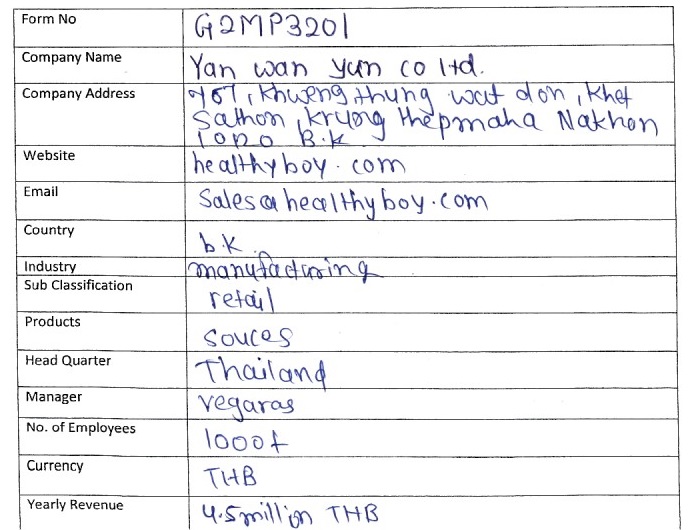 Form No G2MP3201
Company Name Yan wan yun co ltd.
Company Address 767, Khweng thung wat don, Khet
Sathon, krung thepmaha Nakhon
B.K
Website healthyboy.com
Email Sales@healthyboy.com
Country b.k.
Industry manufacturing
Sub Classification retail
Products souces
Head Quarter Thailand
Manager vegaras
No. of Employees 1000+
Currency THB
Yearly Revenue 4.5 million THB